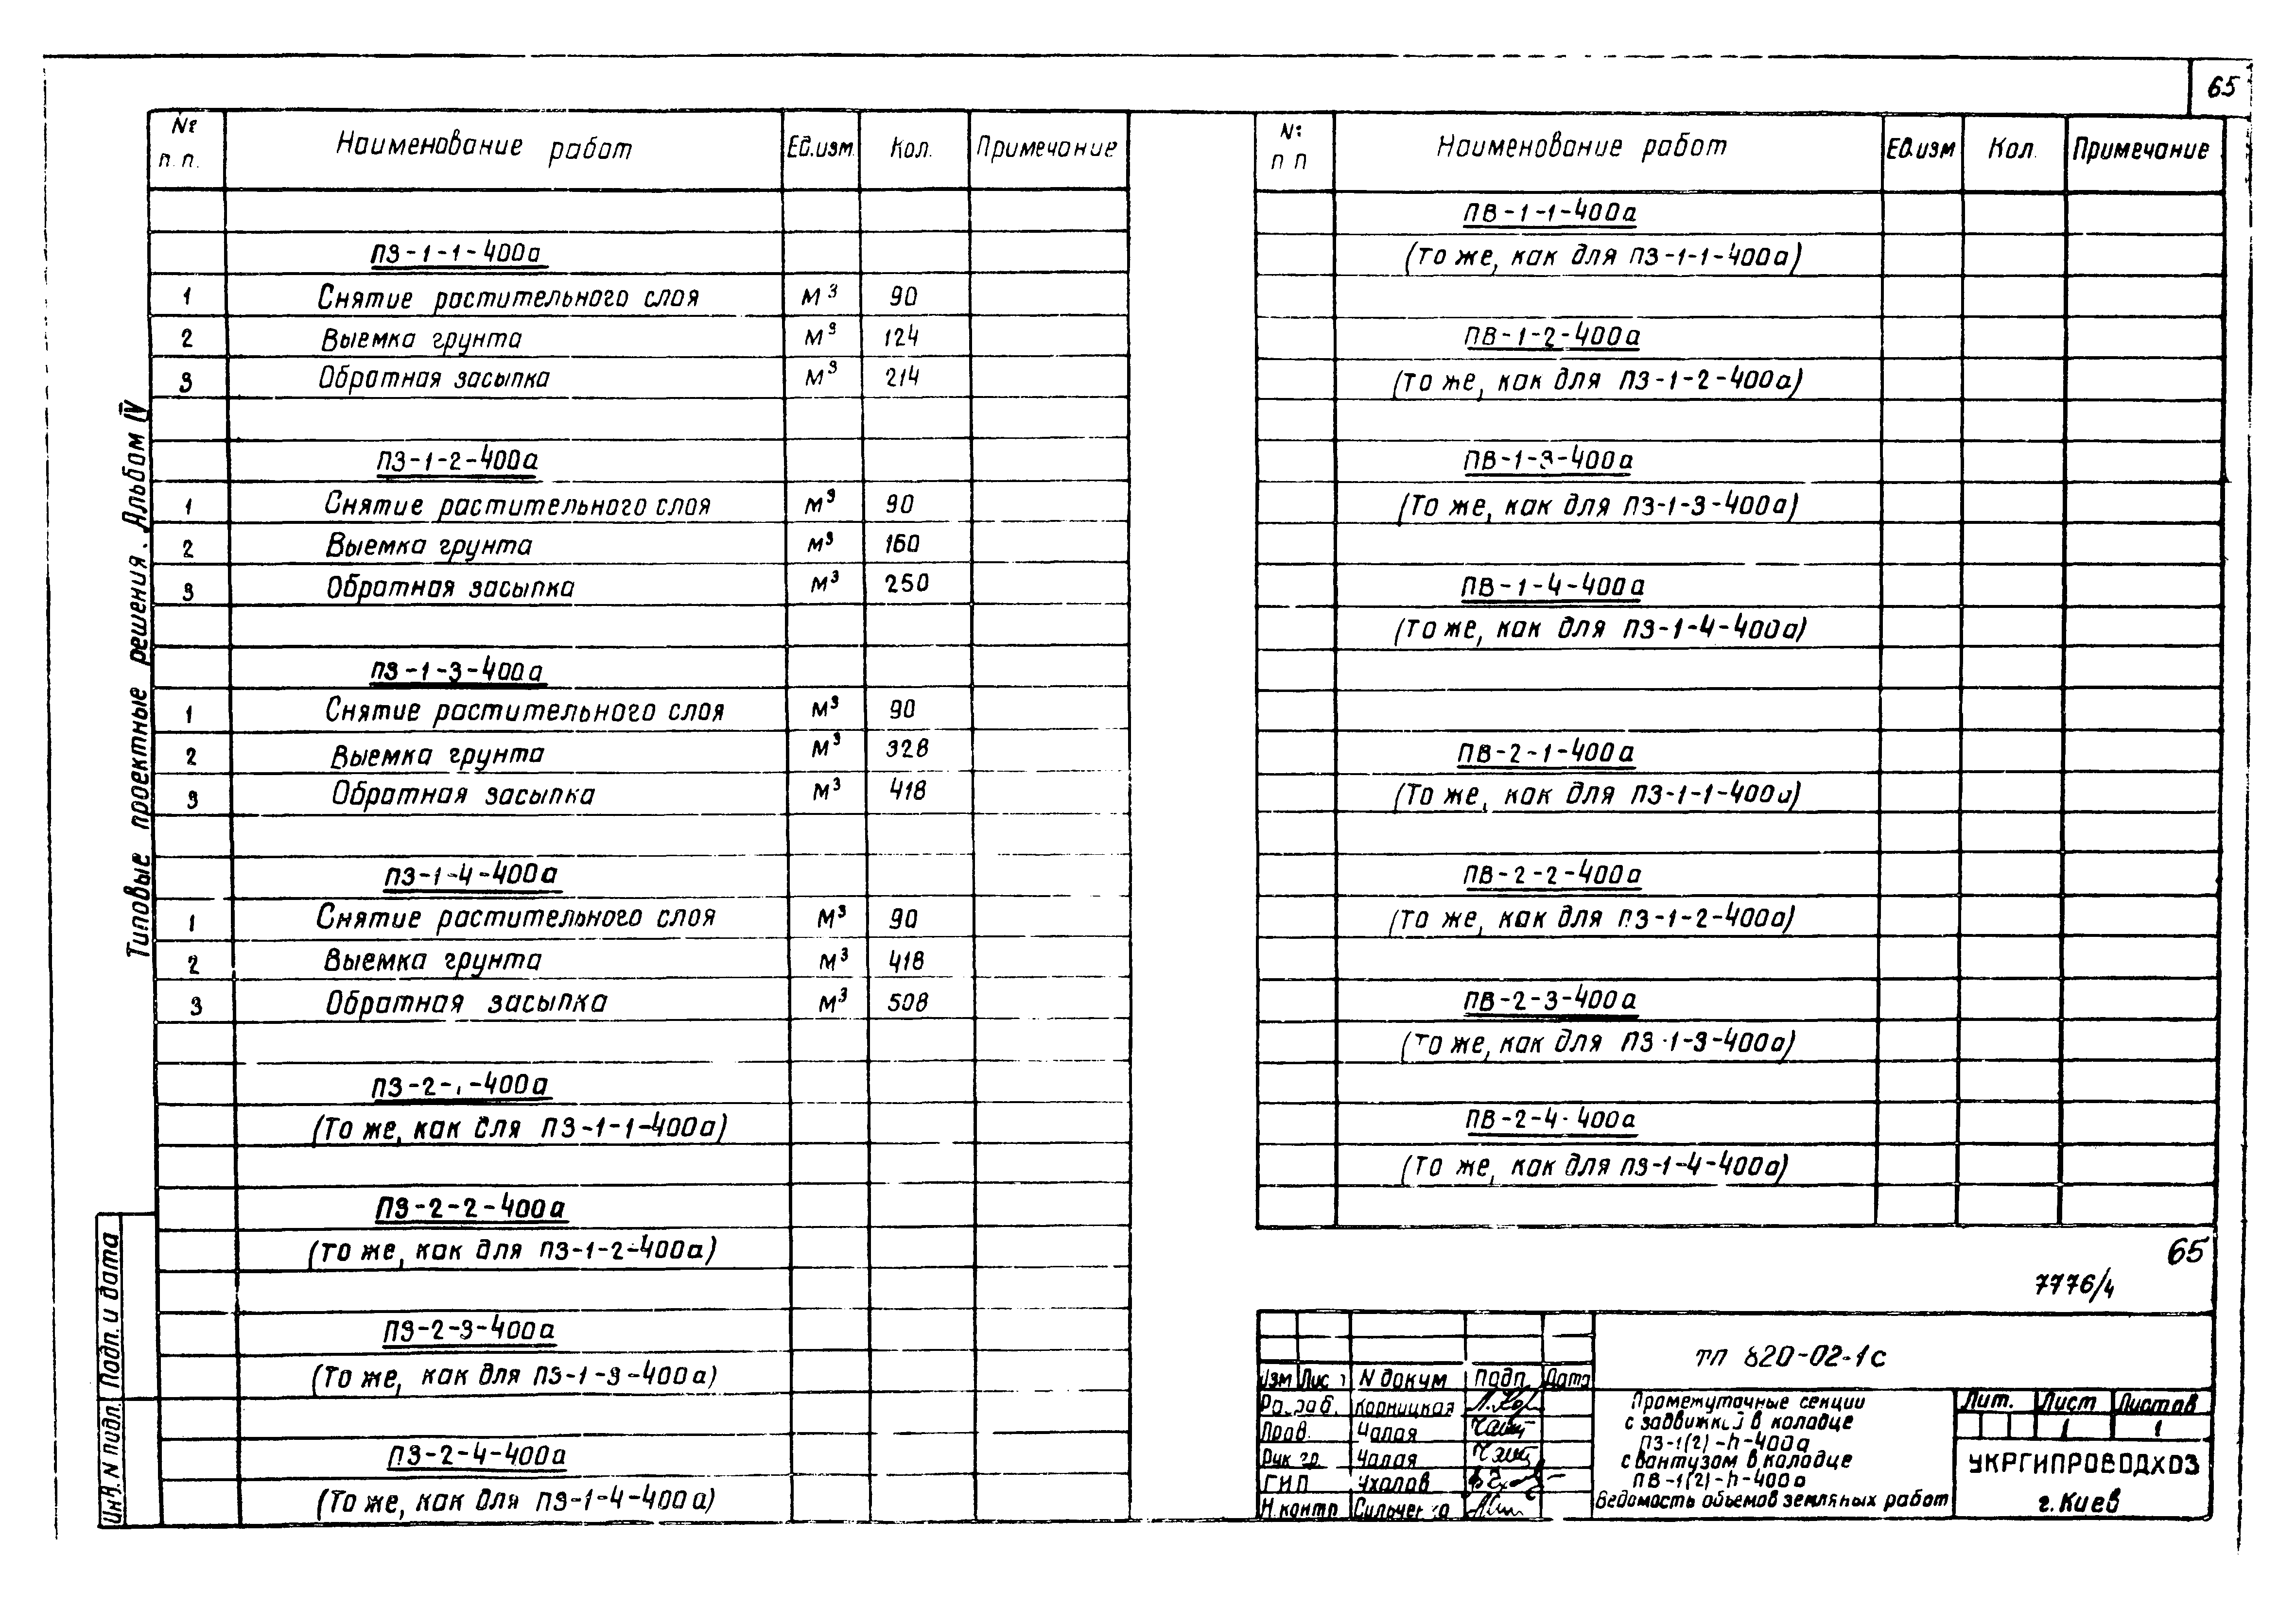 65
№ п.п. Наименование работ Ед.изм. Кол. Примечание
ПЗ-1-1-400а
1 Снятие растительного слоя м³ 90
2 Выемка грунта м³ 124
3 Обратная засыпка м³ 214
ПЗ-1-2-400а
1 Снятие растительного слоя м³ 90
2 Выемка грунта м³ 160
3 Обратная засыпка м³ 250
ПЗ-1-3-400а
1 Снятие растительного слоя м³ 90
2 Выемка грунта м³ 328
3 Обратная засыпка м³ 418
ПЗ-1-4-400а
1 Снятие растительного слоя м³ 90
2 Выемка грунта м³ 418
3 Обратная засыпка м³ 508
ПЗ-2-1-400а
(То же, как для ПЗ-1-1-400а)
ПЗ-2-2-400а
(То же, как для ПЗ-1-2-400а)
ПЗ-2-3-400а
(То же, как для ПЗ-1-3-400а)
ПЗ-2-4-400а
(То же, как для ПЗ-1-4-400а)
№ п п Наименование работ Ед.изм Кол. Примечание
ПВ-1-1-400а
(То же, как для ПЗ-1-1-400а)
ПВ-1-2-400а
(То же, как для ПЗ-1-2-400а)
ПВ-1-3-400а
(То же, как для ПЗ-1-3-400а)
ПВ-1-4-400а
(То же, как для ПЗ-1-4-400а)
ПВ-2-1-400а
(То же, как для ПЗ-1-1-400а)
ПВ-2-2-400а
(То же, как для ПЗ-1-2-400а)
ПВ-2-3-400а
(То же, как для ПЗ-1-3-400а)
ПВ-2-4-400а
(То же, как для ПЗ-1-4-400а)
65
7776/4
Типовые проектные решения. Альбом IV
Подп. и дата
Инв. N подл.
тп 820-02-1с
Изм Лист N докум Подп. Дата
Разраб. Корницкая
Пров. Чалая
Рук гр. Чалая
ГИП Ухалов
Н.контр Сильченко
Промежуточные секции
с задвижкой в колодце
ПЗ-1(2)-h-400а
с вантузом в колодце
ПВ-1(2)-h-400а
Ведомость объемов земляных работ
Лит. Лист Листов
1 1
УКРГИПРОВОДХОЗ
г. Киев